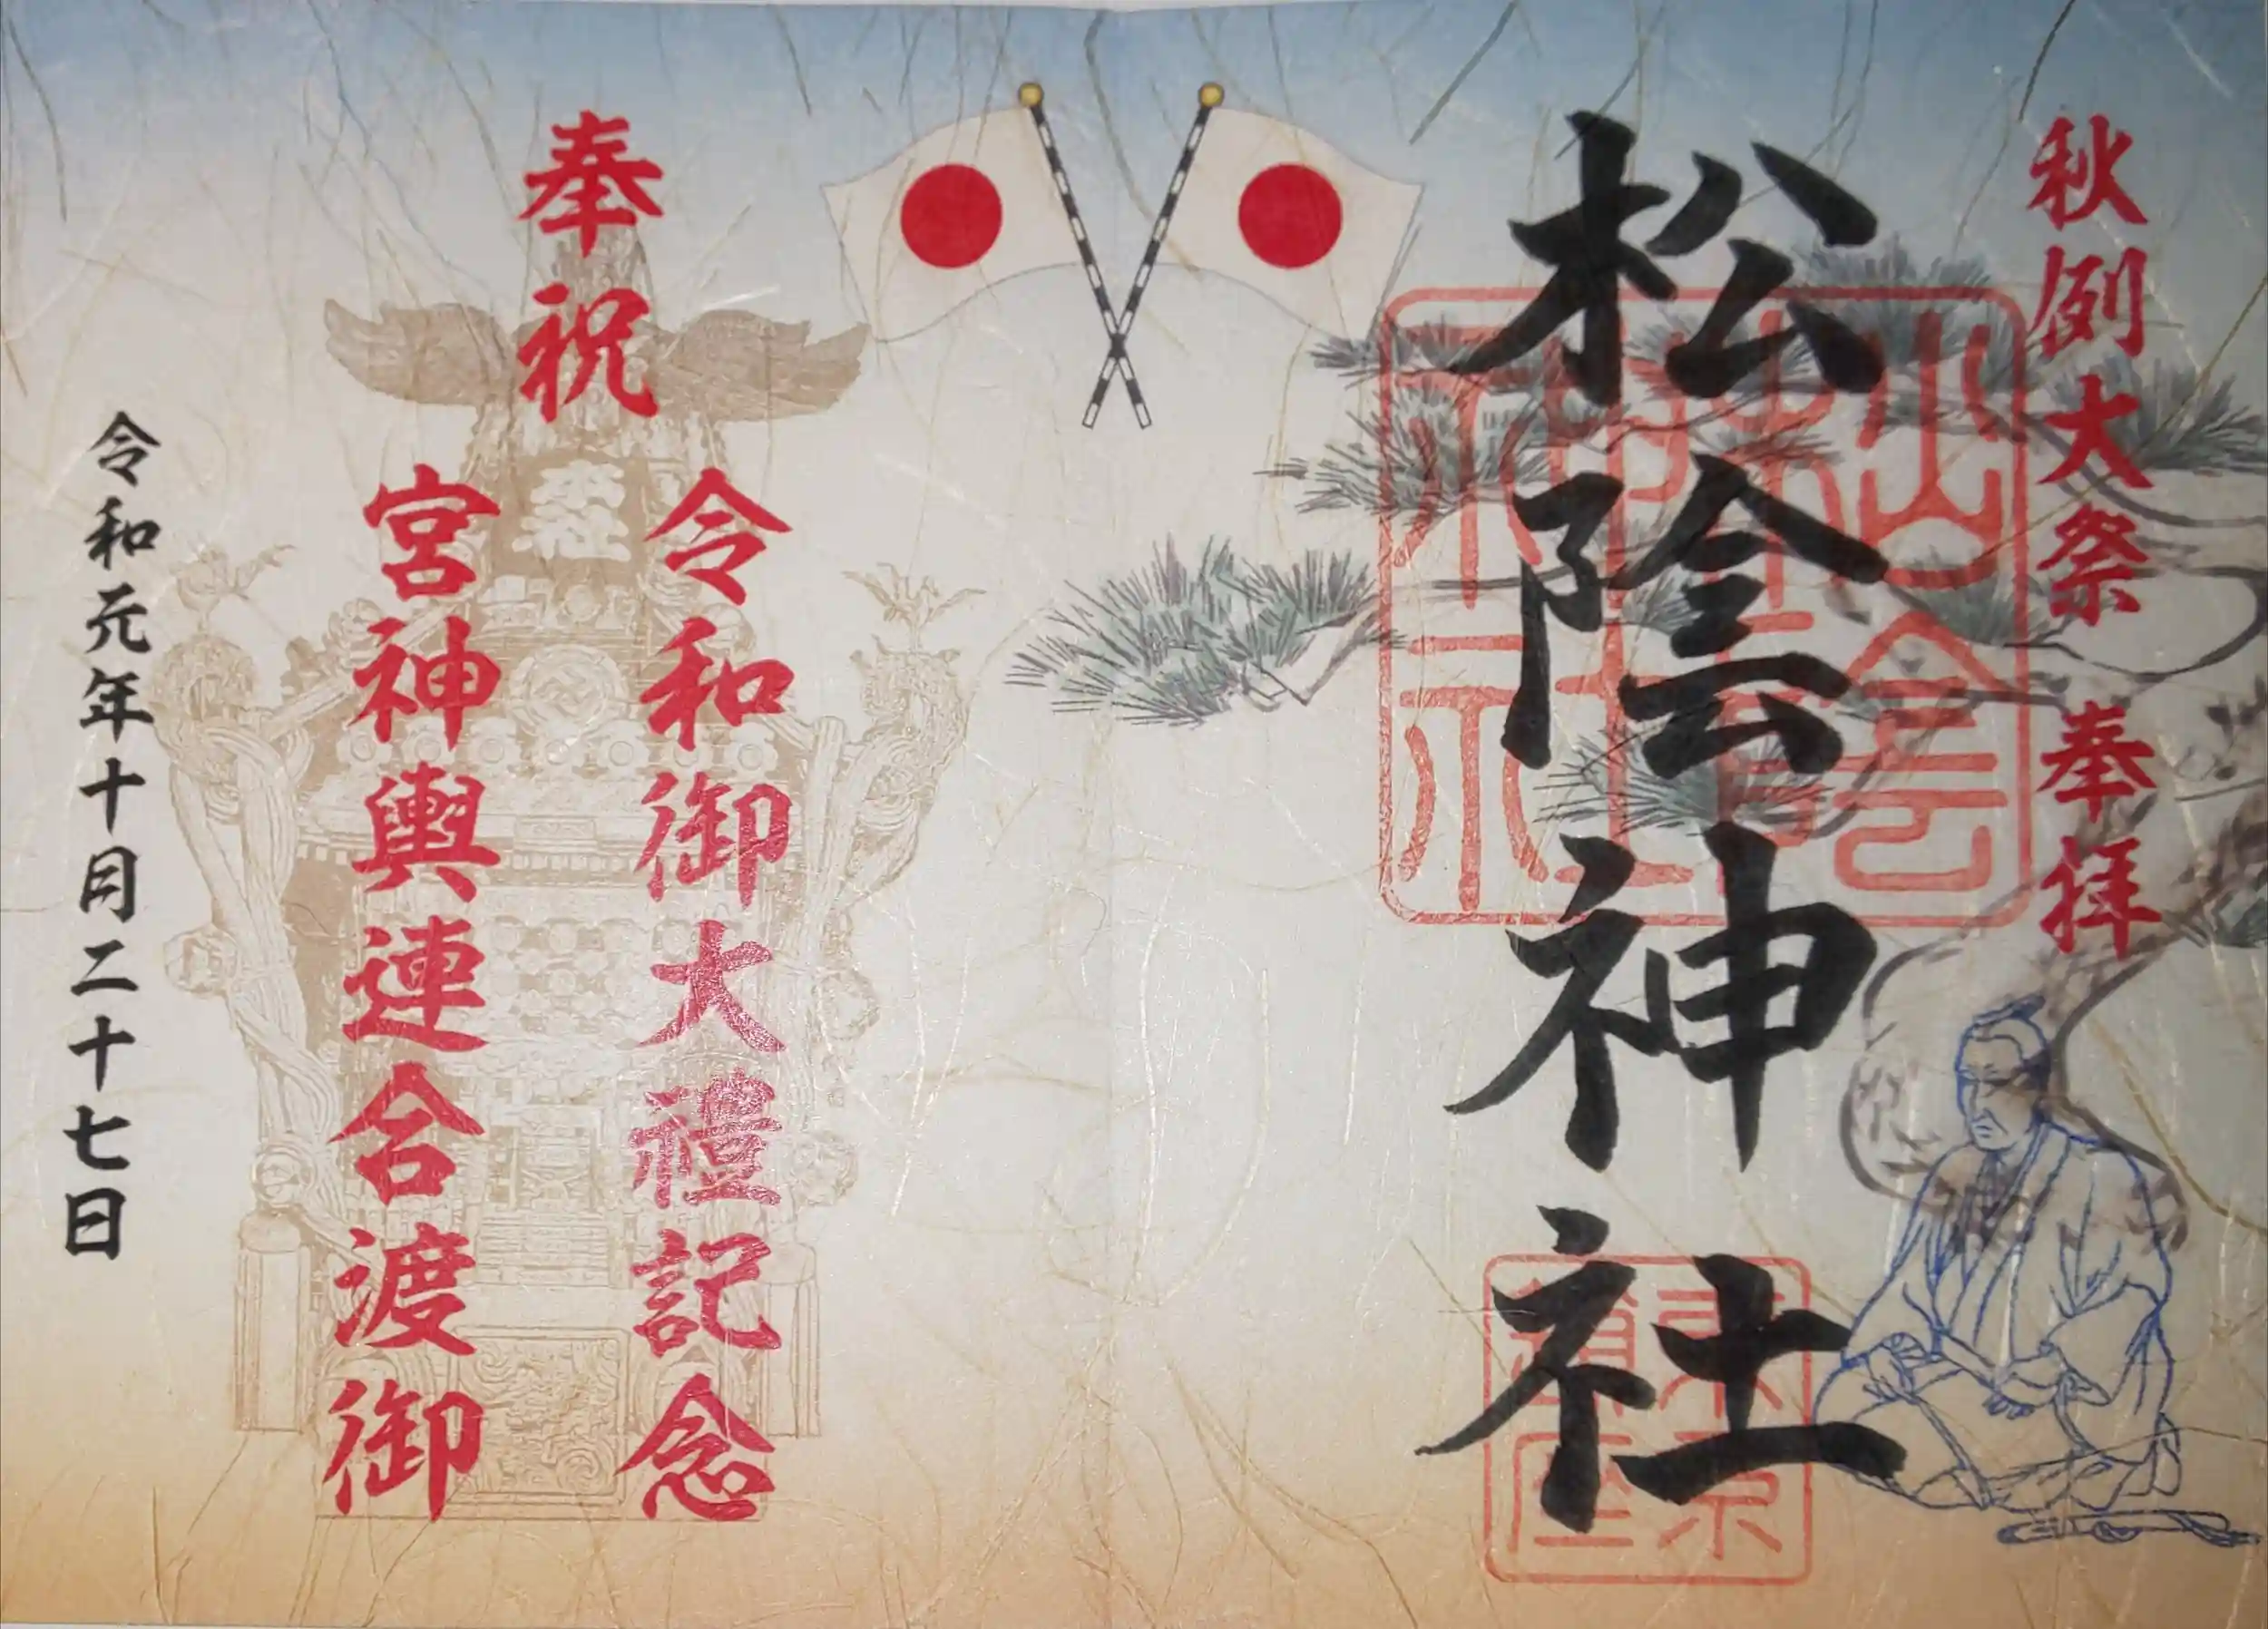 秋例大祭 奉拝
松陰神社
松陰神社
東京鎮座
奉祝
令和御大禮記念
宮神輿連合渡御
令和元年十月二十七日